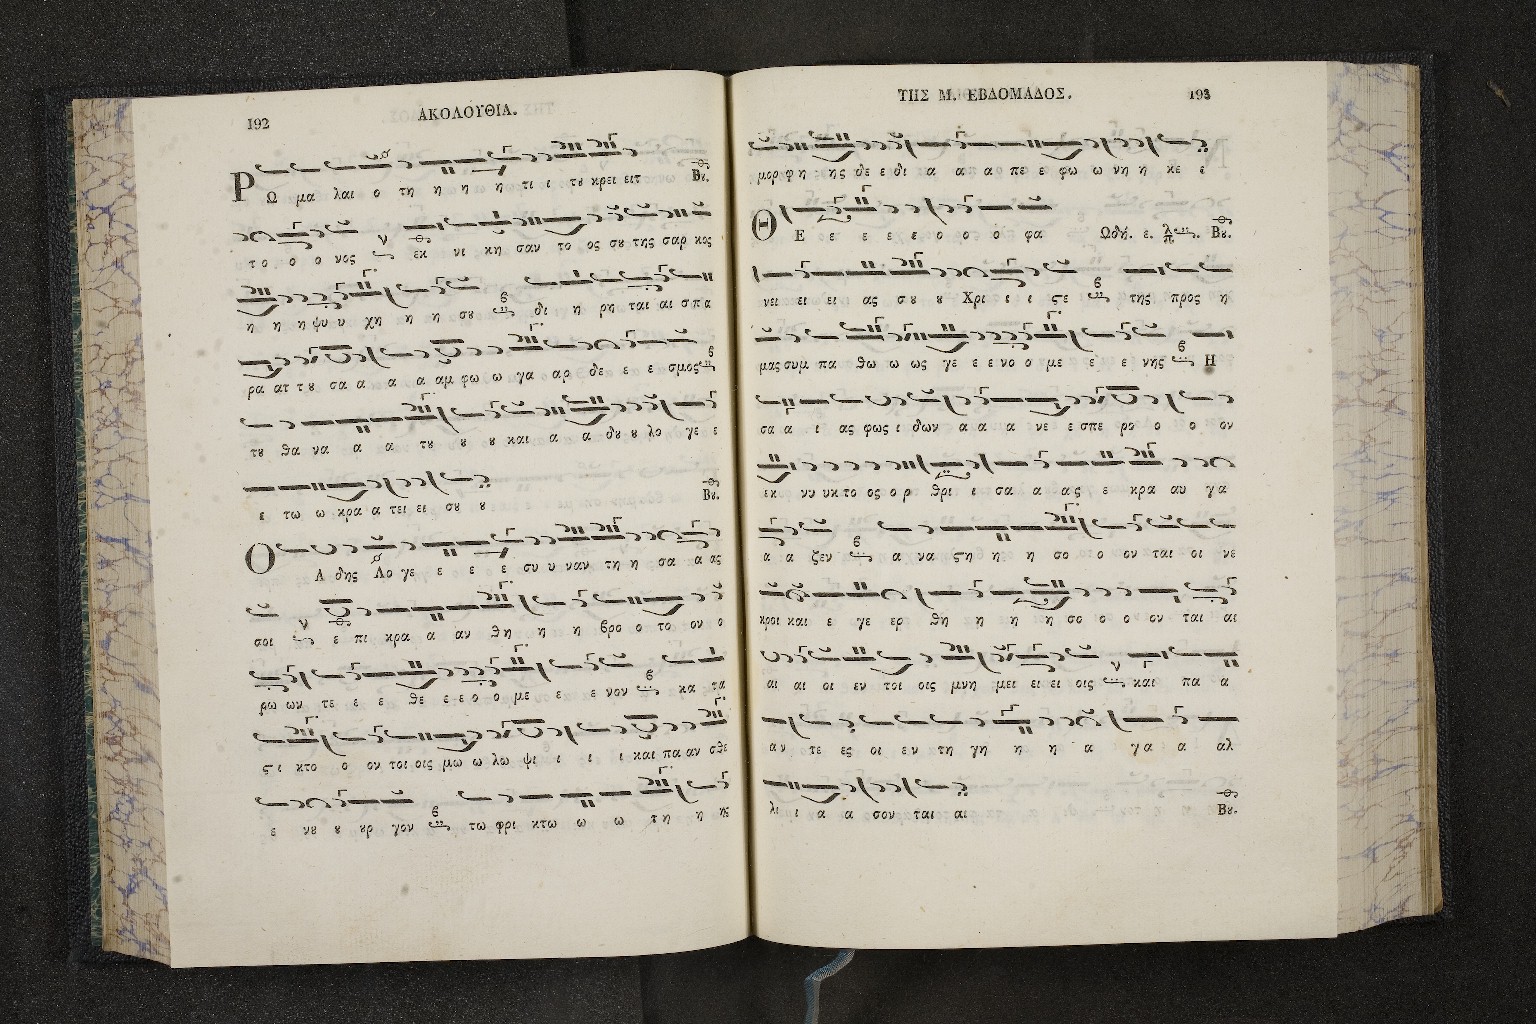 192
ΑΚΟΛΟΥΘΙΑ.
Ρ Ω μα λαι ο τη η η η τι ι τȣ κρει ειτ Βȣ.
το ο ο νος εκ νι κη σαν το ος σȣ της σαρ κος
η η η ψυ υ χη η η σȣ δι η ρη ται αι σπα
ρα ατ τȣ σα α α α αμ φω ω γα αρ δε ε ε σμος
τȣ θα να α α τȣ ȣ ȣ και α α δȣ ȣ λο γε ε
ε τω ω κρα α τει ει σȣ ȣ Βȣ.
Ο Α δης Λο γε ε ε ε συ υ ναν τη η σα α ας
σοι ε πι κρα α αν θη η η βρο ο το ον ο
ρω ων τε ε ε θε ε ε ο ο με ε ε νον κα τα
ϛι κτο ο ον τοι οις μω ω λω ψι ι ι ι και πα αν σθε
ε νȣ ȣ ȣρ γον τω φρι κτω ω ω τη η ης
ΤΗΣ Μ. ΕΒΔΟΜΑΔΟΣ.
193
μορ φη ης δε ε δι α α α πε ε φω ω νη η κε ε
Θ Ε ε ε ε ε ο ο ο φα Ωδή. ε. Βȣ.
νει ει ει ας σȣ ȣ Χρι ι ι ϛε της προς η
μας συμ πα θω ω ως γε ε ε νο ο με ε ε νης Η
σα α ι ας φως ι δων α α α νε ε σπε ρο ο ο ον
εκ νυ υκ το ος ο ρ θρι ι σα α ας ε κρα αυ γα
α α ζεν α να ϛη η η σο ο ον ται οι νε
κροι και ε γε ερ θη η η η σο ο ο ον ται αι
αι αι οι εν τοι οις μνη μει ει ει οις και πα α
αν τε ες οι εν τη γη η η α γα α αλ
λι ι α α σον ται αι Βȣ.